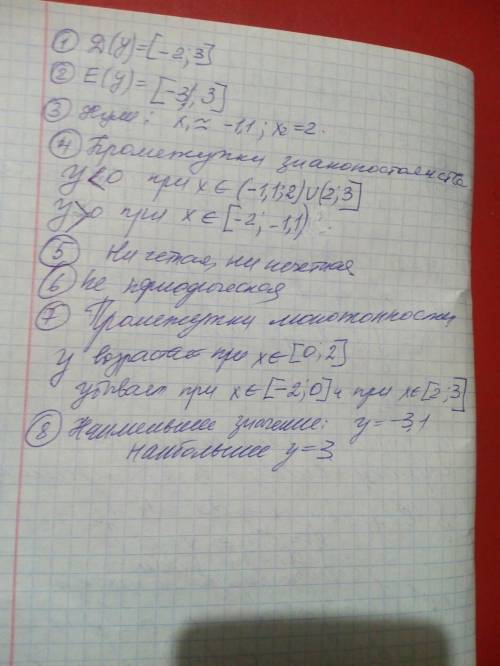 ① D(y)=[-2;3]
② E(y)=[-3,1; 3]
③ Нули: x₁≈ -1,1; x₂=2.
④ Промежутки знакопостоянства
y<0 при x∈(-1,1;2)∪(2;3]
y>0 при x∈[-2; -1,1)
⑤ Ни четная, ни нечетная
⑥ не периодическая
⑦ Промежутки монотонности
y возрастает при x∈[0,2]
убывает при x∈[-2;0] и при x∈[2;3]
⑧ Наименьшее значение: y=-3,1
наибольшее y=3.